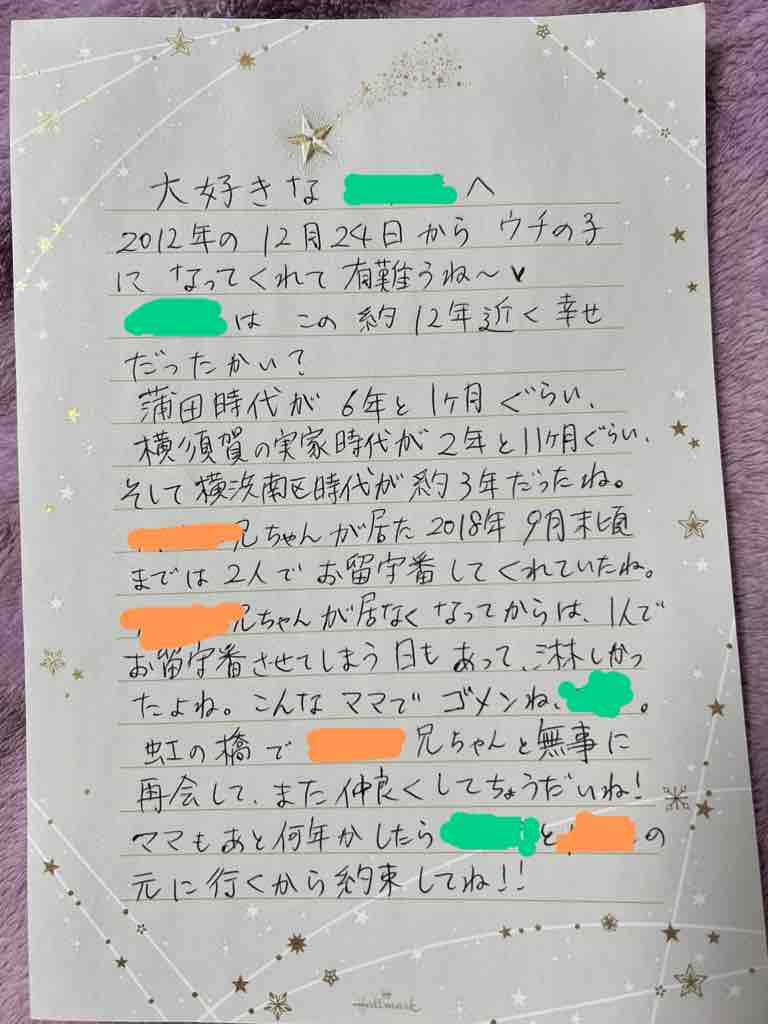 大好きな へ
2012年の 12月24日から ウチの子
に なってくれて 有難うね〜♥
は この 約12年近く 幸せ
だったかい？
蒲田時代が 6年と 1ヶ月 ぐらい、
横須賀の実家時代が 2年と11ヶ月ぐらい、
そして横浜南区時代が約3年だったね。
兄ちゃんが居た 2018年 9月末頃
までは 2人で お留守番 してくれていたね。
兄ちゃんが居なく なってからは、1人で
お留守番させてしまう 日も あって、淋しかっ
たよね。こんな ママで ゴメンね、。
虹の橋で 兄ちゃんと無事に
再会して、また仲良くしてちょうだいね！
ママもあと何年かしたら と の
元に行くから約束してね！！
Hallmark